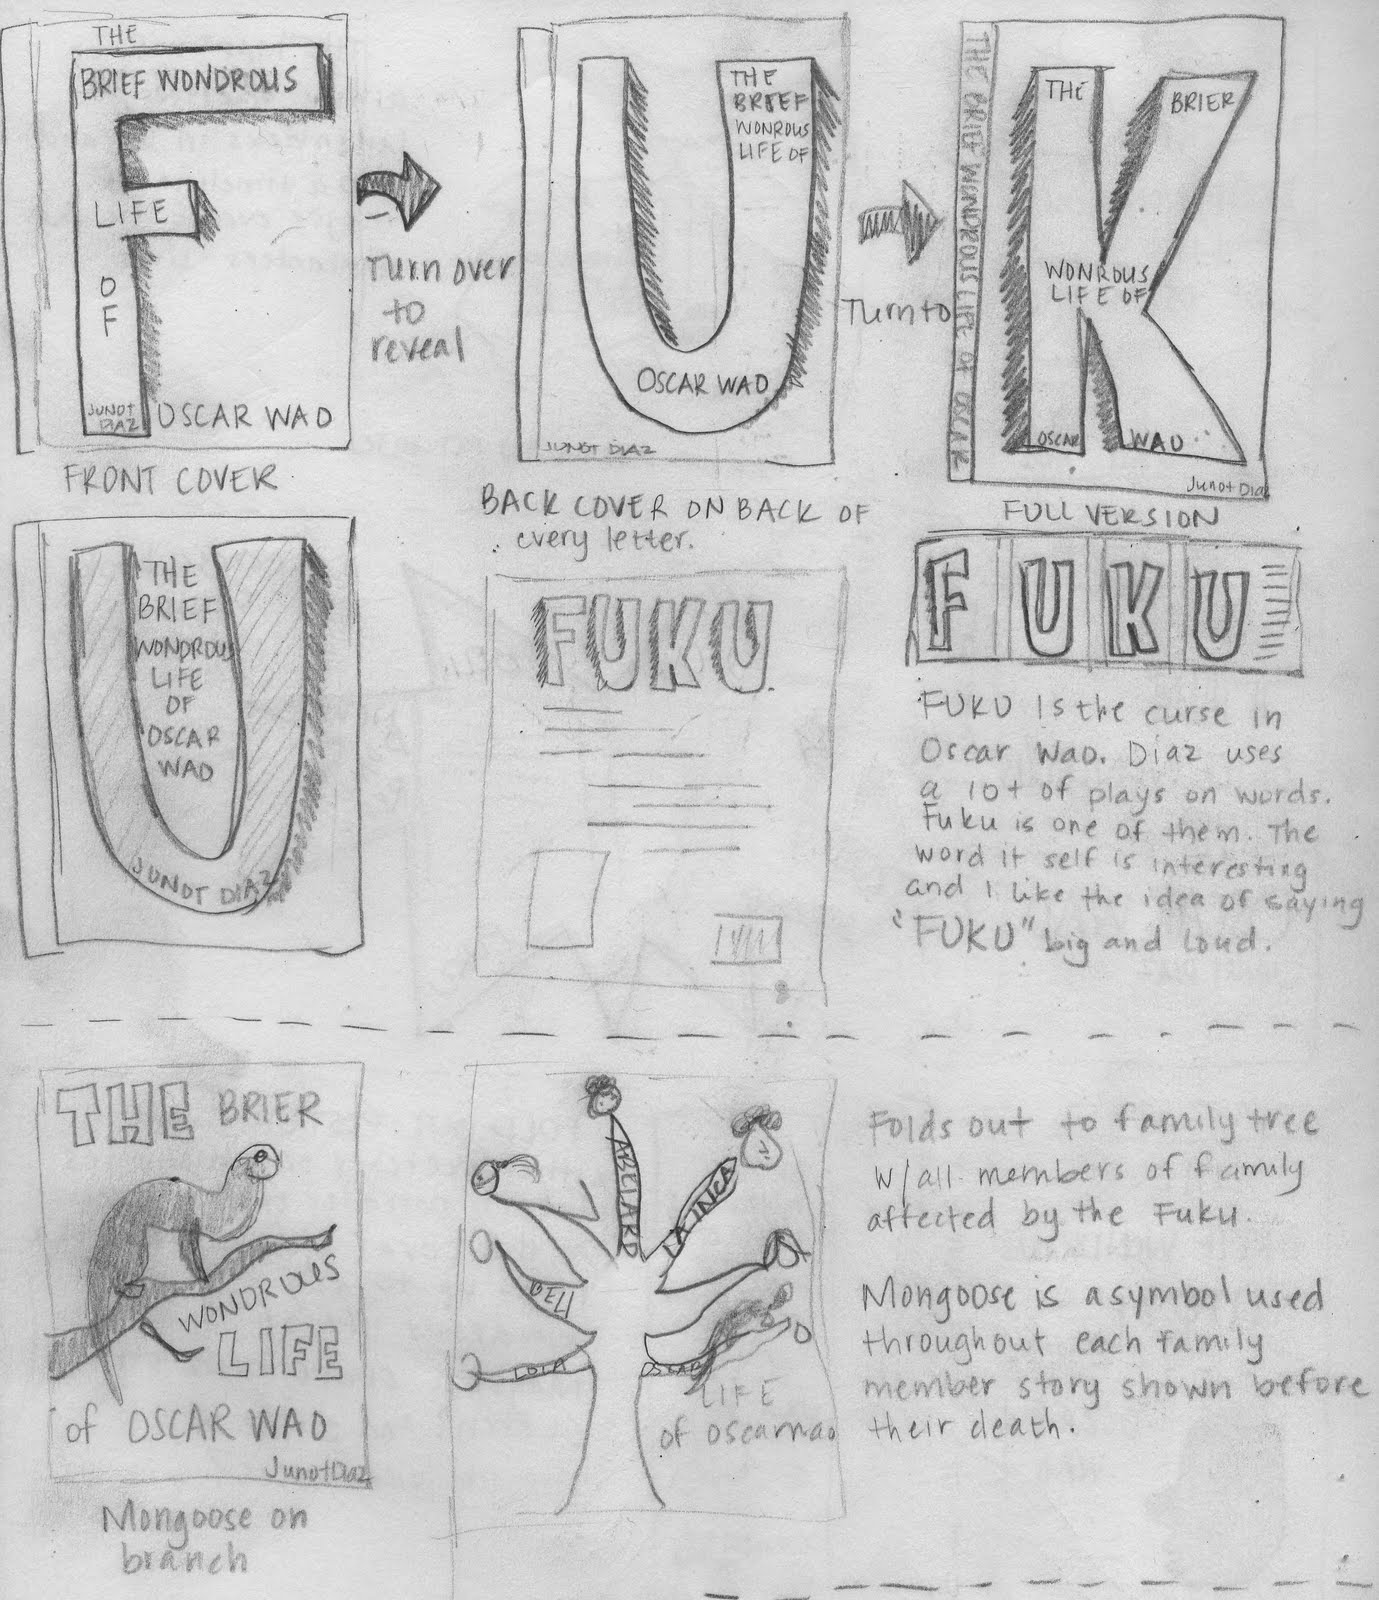 THE
BRIEF WONDROUS
LIFE
O
F
JUNOT
DIAZ
OSCAR WAO
FRONT COVER
Turn over
to
reveal
THE
BRIEF
WONROUS
LIFE OF
OSCAR WAO
JUNOT DIAZ
BACK COVER ON BACK OF
every letter.
Turn to
THE BRIEF WONDROUS LIFE OF OSCAR
THE
BRIER
WONROUS
LIFE OF
OSCAR
WAO
Junot Diaz
FULL VERSION
F U K U
THE
BRIEF
WONDROUS
LIFE
OF
OSCAR
WAO
JUNOT DIAZ
FUKU
FUKU is the curse in
Oscar Wao. Diaz uses
a lot of plays on words.
Fuku is one of them. The
word it self is interesting
and I like the idea of saying
"FUKU" big and loud.
THE BRIER
WONDROUS
LIFE
of OSCAR WAO
Junot Diaz
Mongoose on
branch
ABELARD
LA INCA
BELI
LOLA
OSCAR
LIFE
of oscarwao
Folds out to family tree
w/all members of family
affected by the Fuku.
Mongoose is a symbol used
throughout each family
member story shown before
their death.